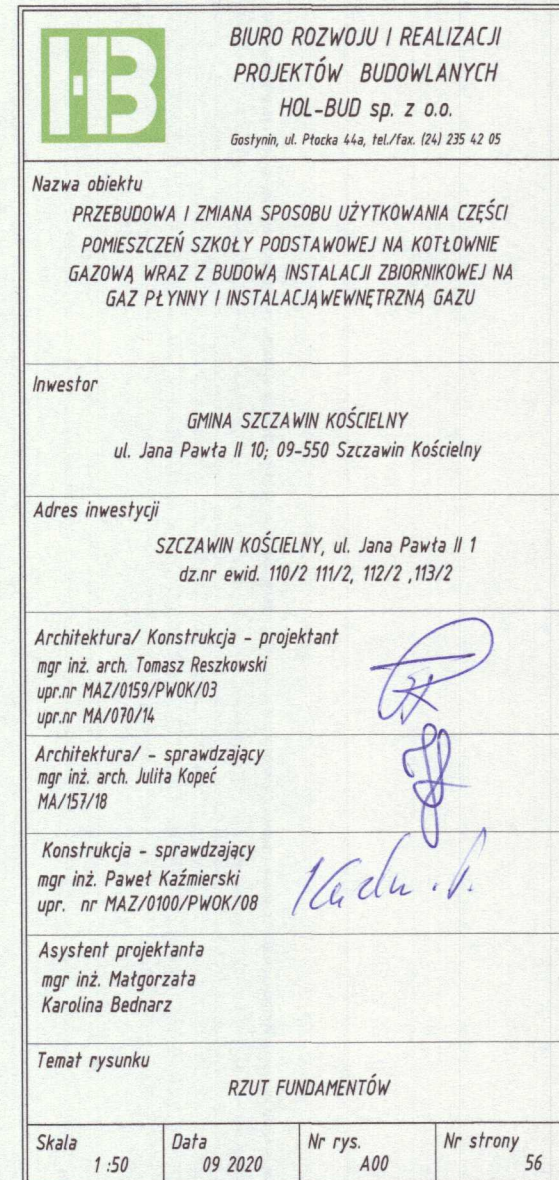 HB
BIURO ROZWOJU I REALIZACJI
PROJEKTÓW BUDOWLANYCH
HOL-BUD sp. z o.o.
Gostynin, ul. Płocka 44a, tel./fax. (24) 235 42 05
Nazwa obiektu
PRZEBUDOWA I ZMIANA SPOSOBU UŻYTKOWANIA CZĘŚCI
POMIESZCZEŃ SZKOŁY PODSTAWOWEJ NA KOTŁOWNIE
GAZOWĄ WRAZ Z BUDOWĄ INSTALACJI ZBIORNIKOWEJ NA
GAZ PŁYNNY I INSTALACJĄWEWNĘTRZNĄ GAZU
Inwestor
GMINA SZCZAWIN KOŚCIELNY
ul. Jana Pawła II 10; 09-550 Szczawin Kościelny
Adres inwestycji
SZCZAWIN KOŚCIELNY, ul. Jana Pawła II 1
dz.nr ewid. 110/2 111/2, 112/2 ,113/2
Architektura/ Konstrukcja - projektant
mgr inż. arch. Tomasz Reszkowski
upr.nr MAZ/0159/PWOK/03
upr.nr MA/070/14
Architektura/ - sprawdzający
mgr inż. arch. Julita Kopeć
MA/157/18
Konstrukcja - sprawdzający
mgr inż. Paweł Kaźmierski
upr. nr MAZ/0100/PWOK/08
Asystent projektanta
mgr inż. Małgorzata
Karolina Bednarz
Temat rysunku
RZUT FUNDAMENTÓW
Skala
1 :50
Data
09 2020
Nr rys.
A00
Nr strony
56